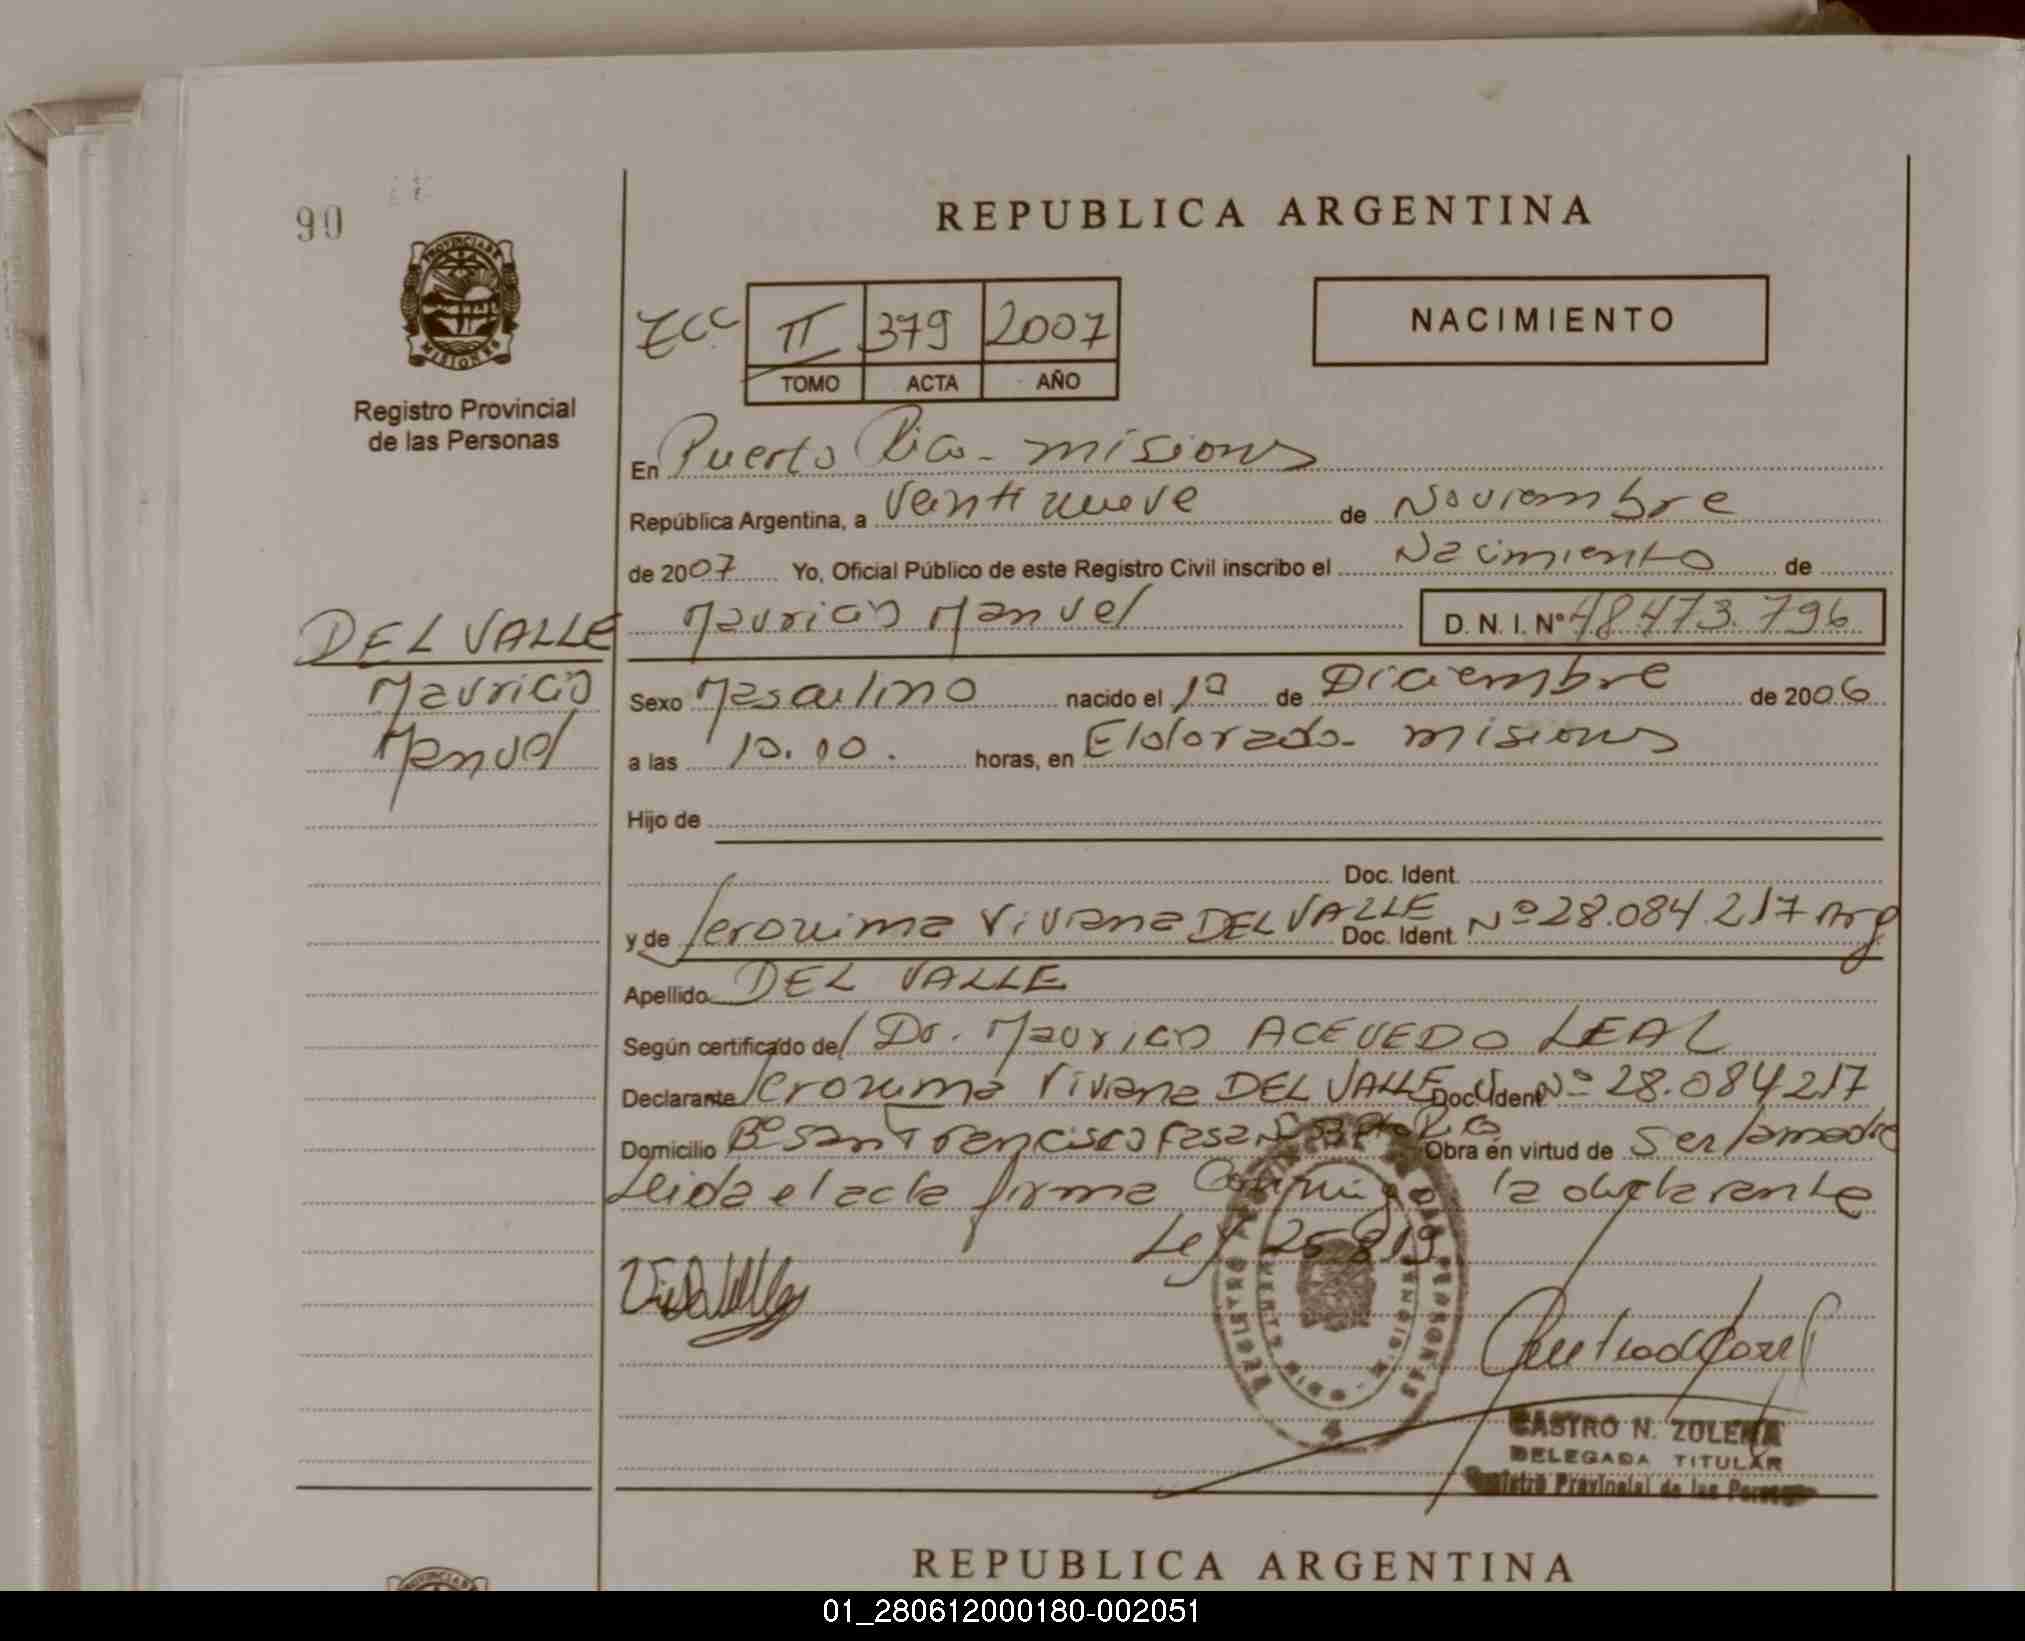 90
PROVINCIA DE
MISIONES
Registro Provincial
de las Personas
REPUBLICA ARGENTINA
II 379 2007
TOMO ACTA AÑO
NACIMIENTO
En Puerto Rico - misiones
República Argentina, a Veintinueve de Noviembre
de 2007 Yo, Oficial Público de este Registro Civil inscribo el Nacimiento de
Mauricio Manuel D. N. I. Nº 48473.796
DEL VALLE
Mauricio
Manuel
Sexo Masculino nacido el 1º de Diciembre de 2006
a las 10.00. horas, en Eldorado - misiones
Hijo de
Doc. Ident.
y de Jeronima Viviana DEL VALLE Doc. Ident. Nº 28.084.217 Arg
Apellido DEL VALLE
Según certificado de Dr. Mauricio ACEVEDO LEAL
Declarante Jeronima Viviana DEL VALLE Doc. Ident Nº 28.084217
Domicilio Bº San Francisco Casa Obra en virtud de Ser la madre
Leida el acta firma Conmigo la declarante
Ley 25.819
CASTRO N. ZULEMA
DELEGADA TITULAR
Registro Provincial de las Personas
REPUBLICA ARGENTINA
01_280612000180-002051